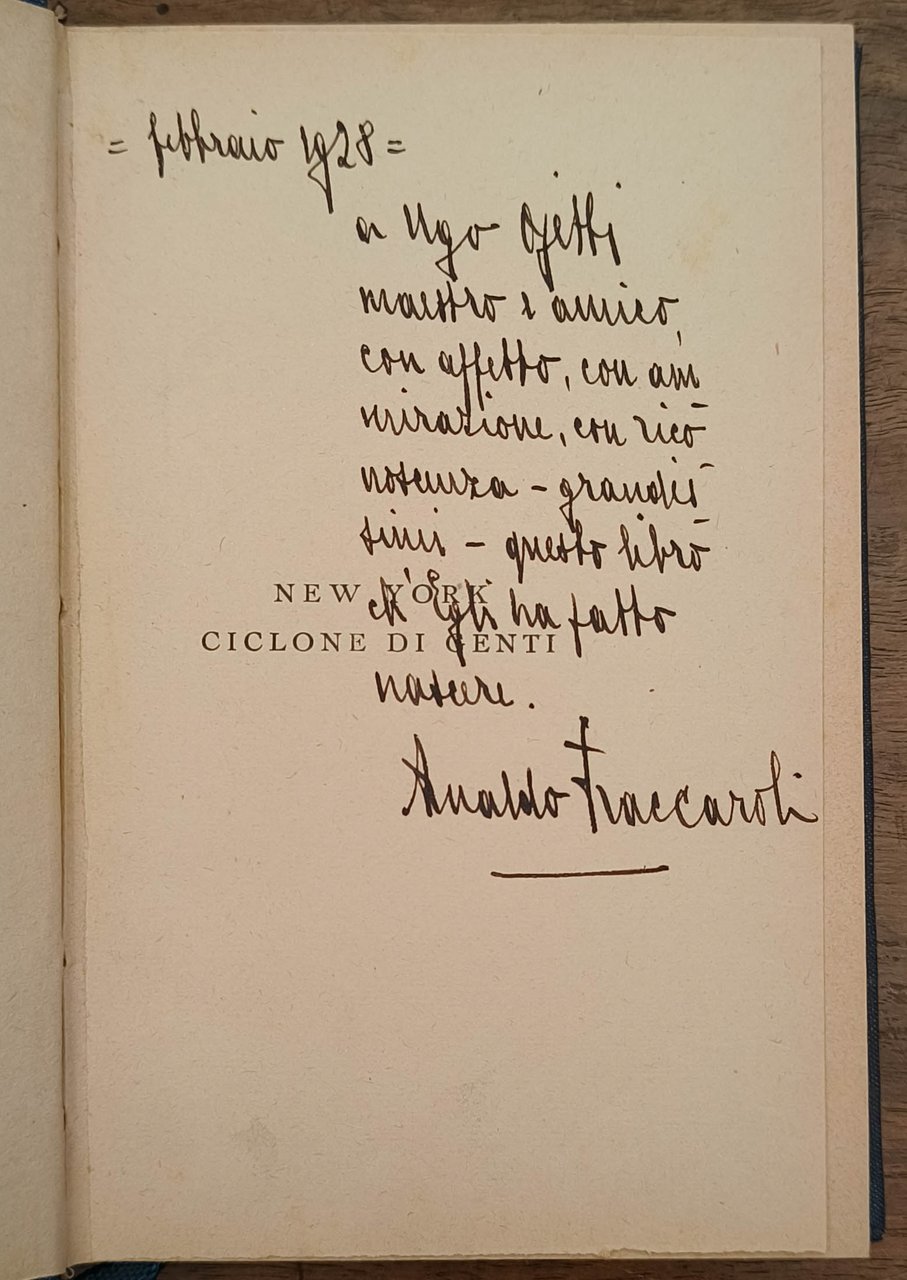 = febbraio 1928 =
a Ugo Ojetti
maestro e amico,
con affetto, con am
mirazione, con rico-
noscenza - grandis-
simi - questo libro
NEW YORK
ch'Egli ha fatto
CICLONE DI GENTI
nascere.
Arnaldo Fraccaroli